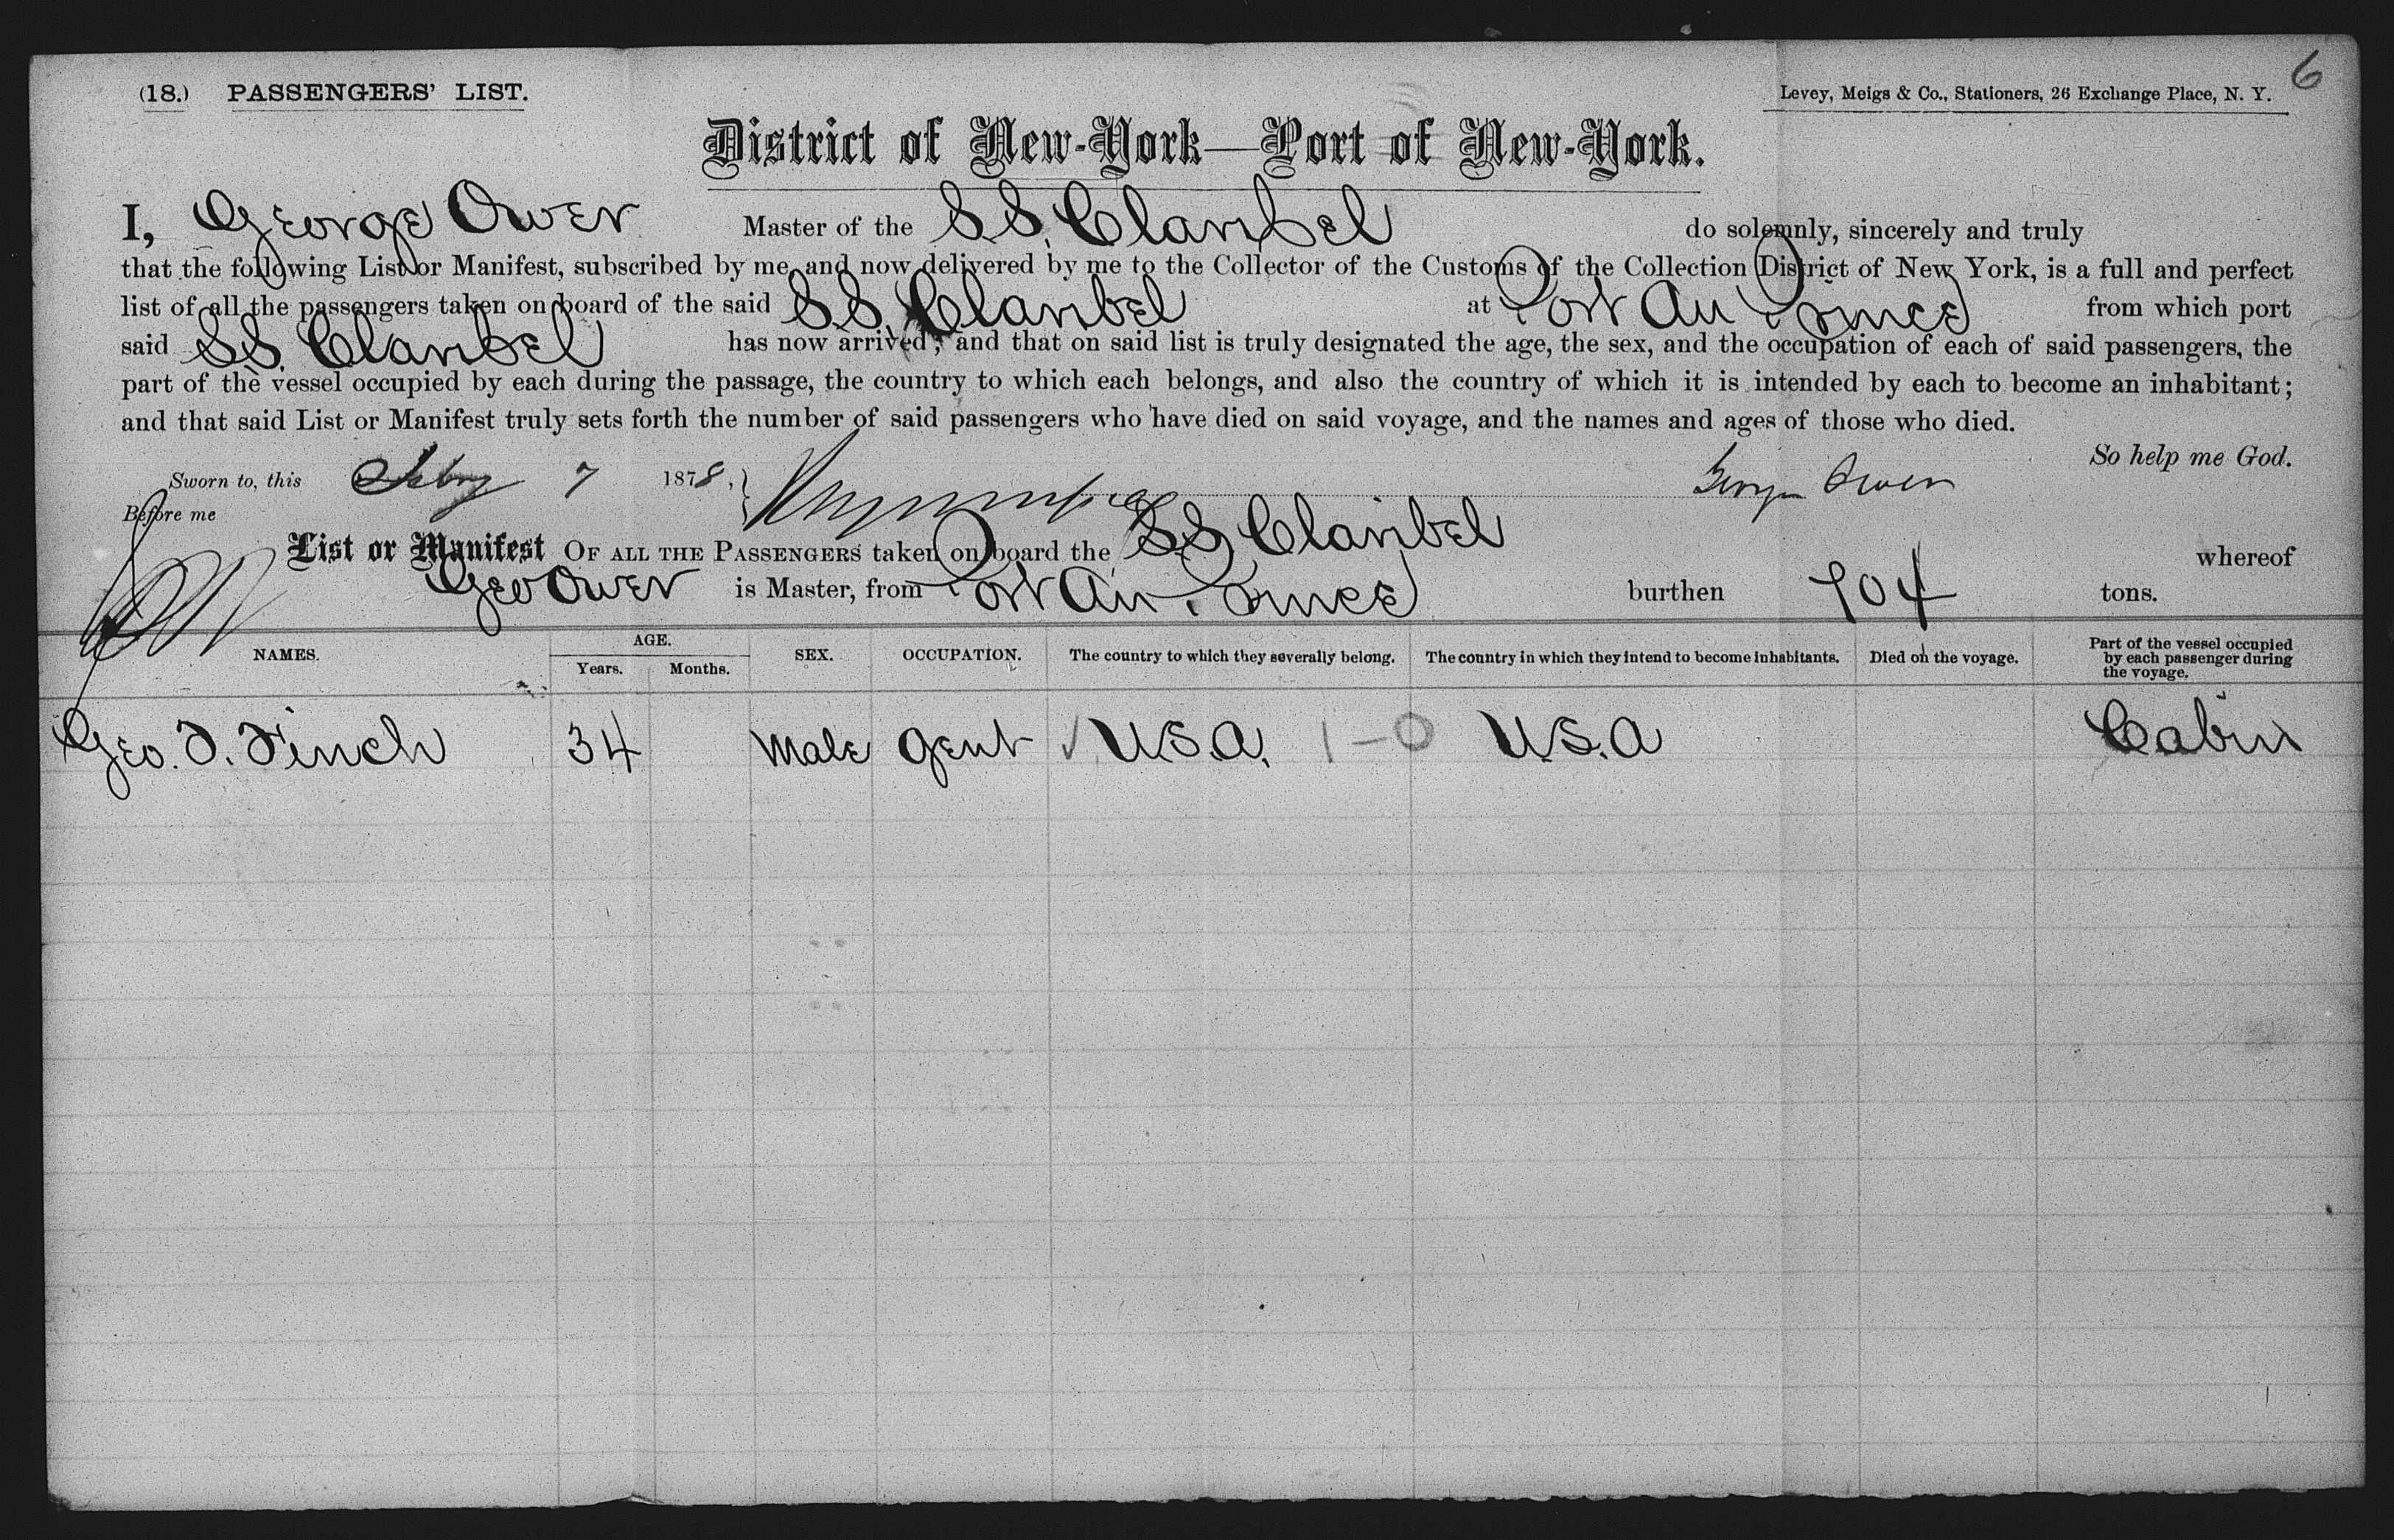 6
(18.) PASSENGERS' LIST.
Levey, Meigs & Co., Stationers, 26 Exchange Place, N. Y.
District of New-York—Port of New-York.
I, George Owen Master of the S.S. Claribel do solemnly, sincerely and truly
that the following List or Manifest, subscribed by me, and now delivered by me to the Collector of the Customs of the Collection District of New York, is a full and perfect
list of all the passengers taken on board of the said S.S. Claribel at Port Au Prince from which port
said S.S. Claribel has now arrived; and that on said list is truly designated the age, the sex, and the occupation of each of said passengers, the
part of the vessel occupied by each during the passage, the country to which each belongs, and also the country of which it is intended by each to become an inhabitant;
and that said List or Manifest truly sets forth the number of said passengers who have died on said voyage, and the names and ages of those who died.
So help me God.
Sworn to, this Feby 7 1878, George Owen
Before me
List or Manifest OF ALL THE PASSENGERS taken on board the S.S. Claribel whereof
Geo Owen is Master, from Port Au Prince burthen 904 tons.
NAMES. AGE. Years. Months. SEX. OCCUPATION. The country to which they severally belong. The country in which they intend to become inhabitants. Died on the voyage. Part of the vessel occupied by each passenger during the voyage.
Geo. F. Finch 34 Male Gent U.S.A. 1-0 U.S.A Cabin